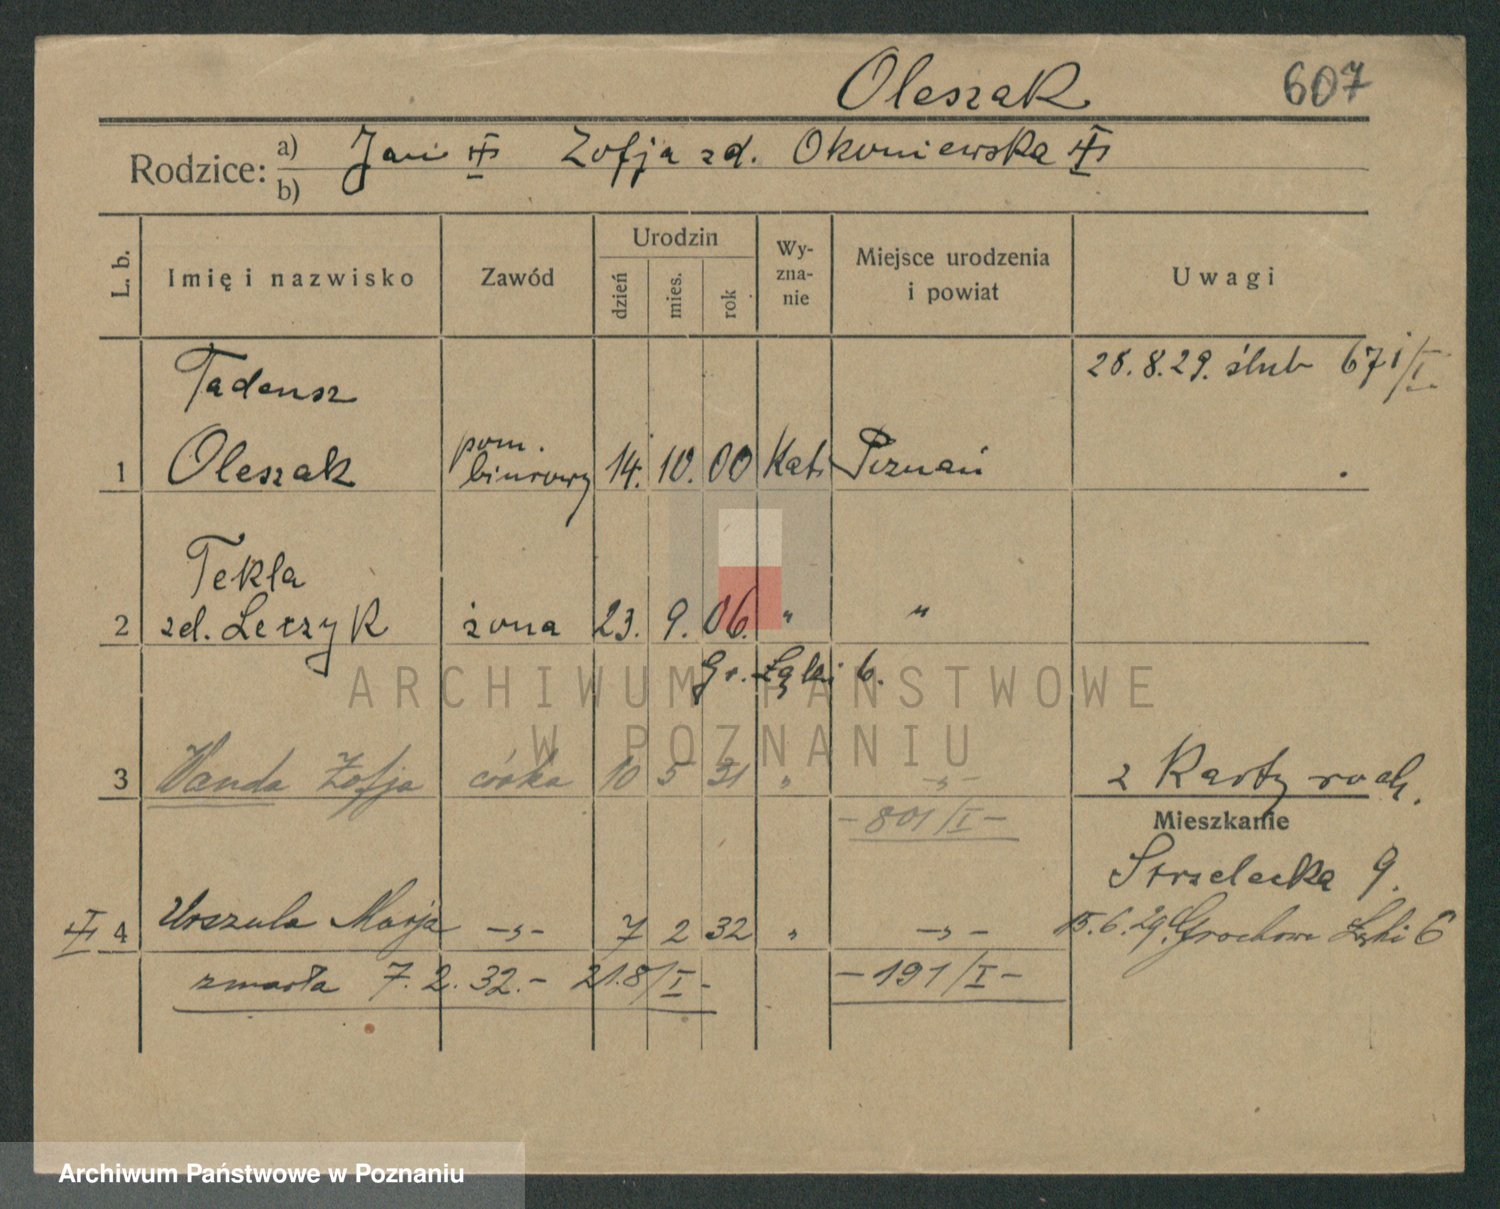 Oleszak 607
Rodzice: a) b) Jan Zofja zd. Okoniewska
L. b. Imię i nazwisko Zawód Urodzin dzień mies. rok Wyznanie Miejsce urodzenia i powiat Uwagi
28.8.29. ślub 671/I
Tadeusz
1 Oleszak pom. biurowy 14. 10. 00 Kat. Poznań
Tekla
2 zd. żona 23. 9. 06. " "
Gr. Łąki 6.
3 Wanda Zofja córka 10 5 31 " -"-
2 Karty
- 801/I -
Mieszkanie
Strzelecka 9.
4 Urszula Marja -"- 7 2 32 " -"-
15.6.29. Grochowe Łąki 6
zmarła 7. 2. 32. - 218/I -
- 191/I -
ARCHIWUM PAŃSTWOWE
W POZNANIU
Archiwum Państwowe w Poznaniu